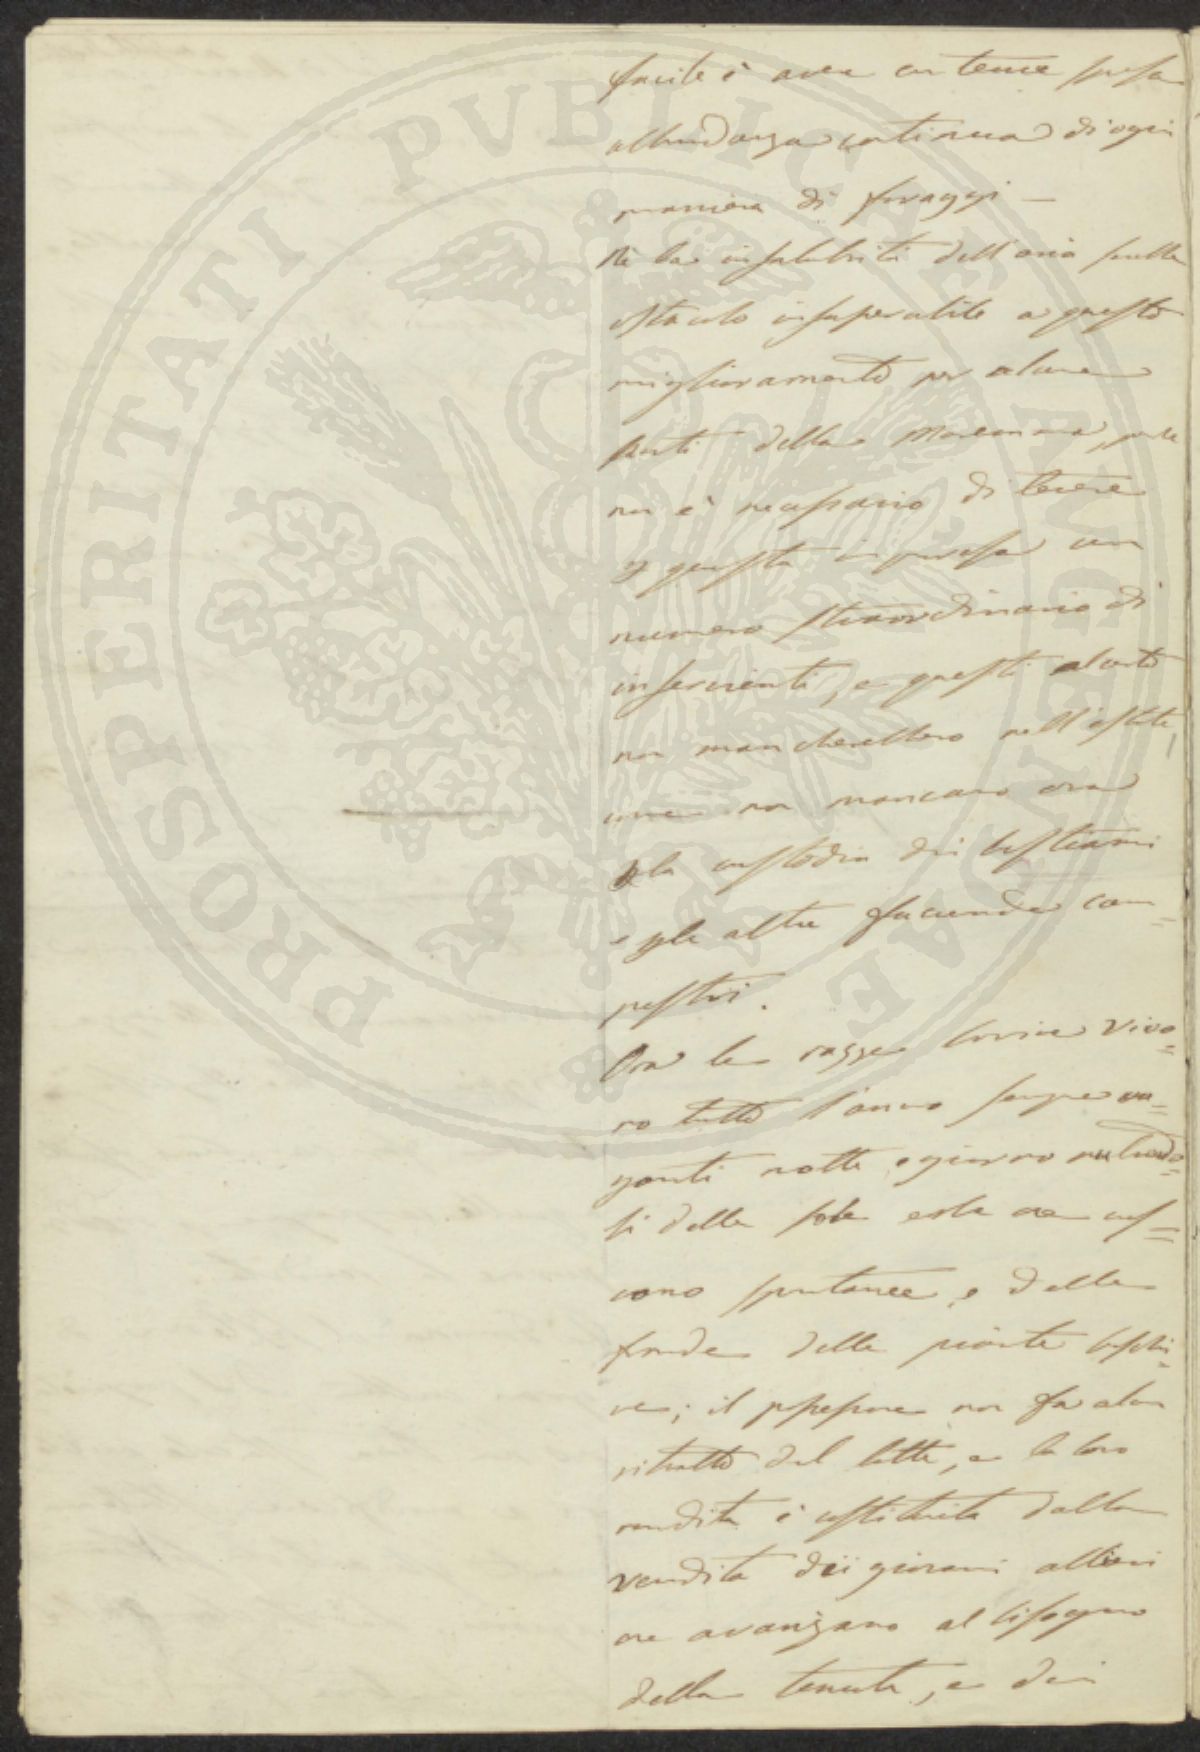 facile è aver con tenue spesa
abbondanza continua di ogni
maniera di foraggi —
Nè la insalubrità dell'aria sarebbe
ostacolo insuperabile a questo
miglioramento per alcune
parti della Maremma, perche
non è necessario di tenere
p questa impresa un
numero straordinario di
inservienti, e questi al certo
non mancherebbero nell'estate,
come non mancano ora
p la custodia dei bestiami
e p le altre faccende cam-
pestri.
Ora le razze bovine vivo=
no tutto l'anno sempre va=
ganti notte e giorno nutrendo=
si della sola erba che cres=
cono spontanee, e delle
fronde delle piante boschi=
ve; il possessore non fa alcun
ritratto del latte, e la loro
rendita è costituita dalla
vendita dei giovani allievi
che avanzano al bisogno
della tenuta, e dei
PROSPERITATI PVBLICAE AVGENDAE